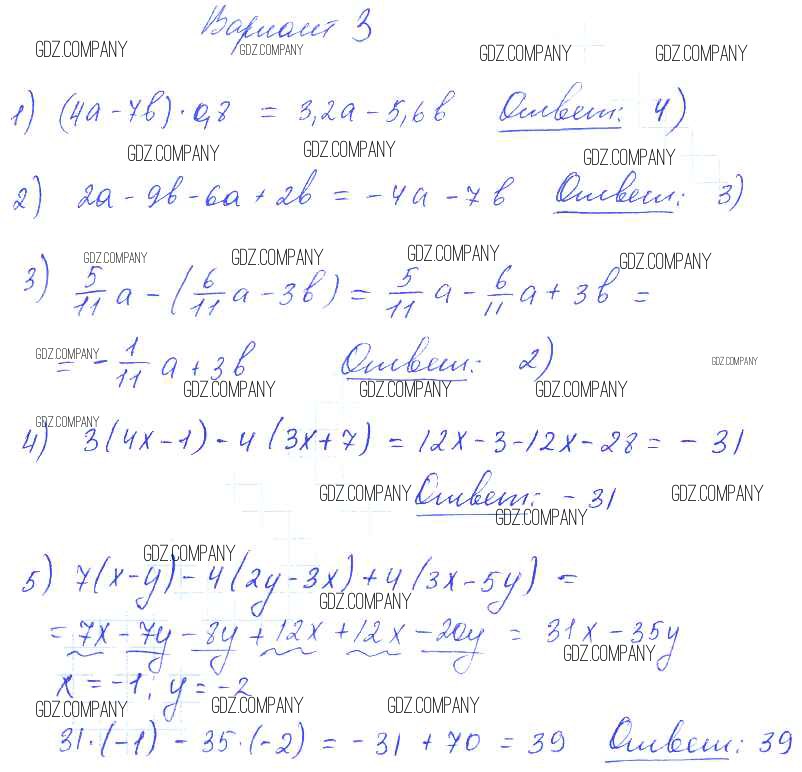 Вариант 3
GDZ.COMPANY GDZ.COMPANY GDZ.COMPANY GDZ.COMPANY
1) (4a - 7b) · 0,8 = 3,2a - 5,6b Ответ: 4)
GDZ.COMPANY GDZ.COMPANY GDZ.COMPANY
2) 2a - 9b - 6a + 2b = -4a - 7b Ответ: 3)
GDZ.COMPANY GDZ.COMPANY GDZ.COMPANY GDZ.COMPANY
3) 5/11 a - (6/11 a - 3b) = 5/11 a - 6/11 a + 3b =
GDZ.COMPANY GDZ.COMPANY
= - 1/11 a + 3b Ответ: 2)
GDZ.COMPANY GDZ.COMPANY GDZ.COMPANY
GDZ.COMPANY
4) 3(4x - 1) - 4(3x + 7) = 12x - 3 - 12x - 28 = - 31
GDZ.COMPANY Ответ: - 31 GDZ.COMPANY
GDZ.COMPANY
GDZ.COMPANY
5) 7(x - y) - 4(2y - 3x) + 4(3x - 5y) =
GDZ.COMPANY
= 7x - 7y - 8y + 12x + 12x - 20y = 31x - 35y
GDZ.COMPANY
x = -1; y = -2
GDZ.COMPANY GDZ.COMPANY GDZ.COMPANY
31·(-1) - 35·(-2) = -31 + 70 = 39 Ответ: 39